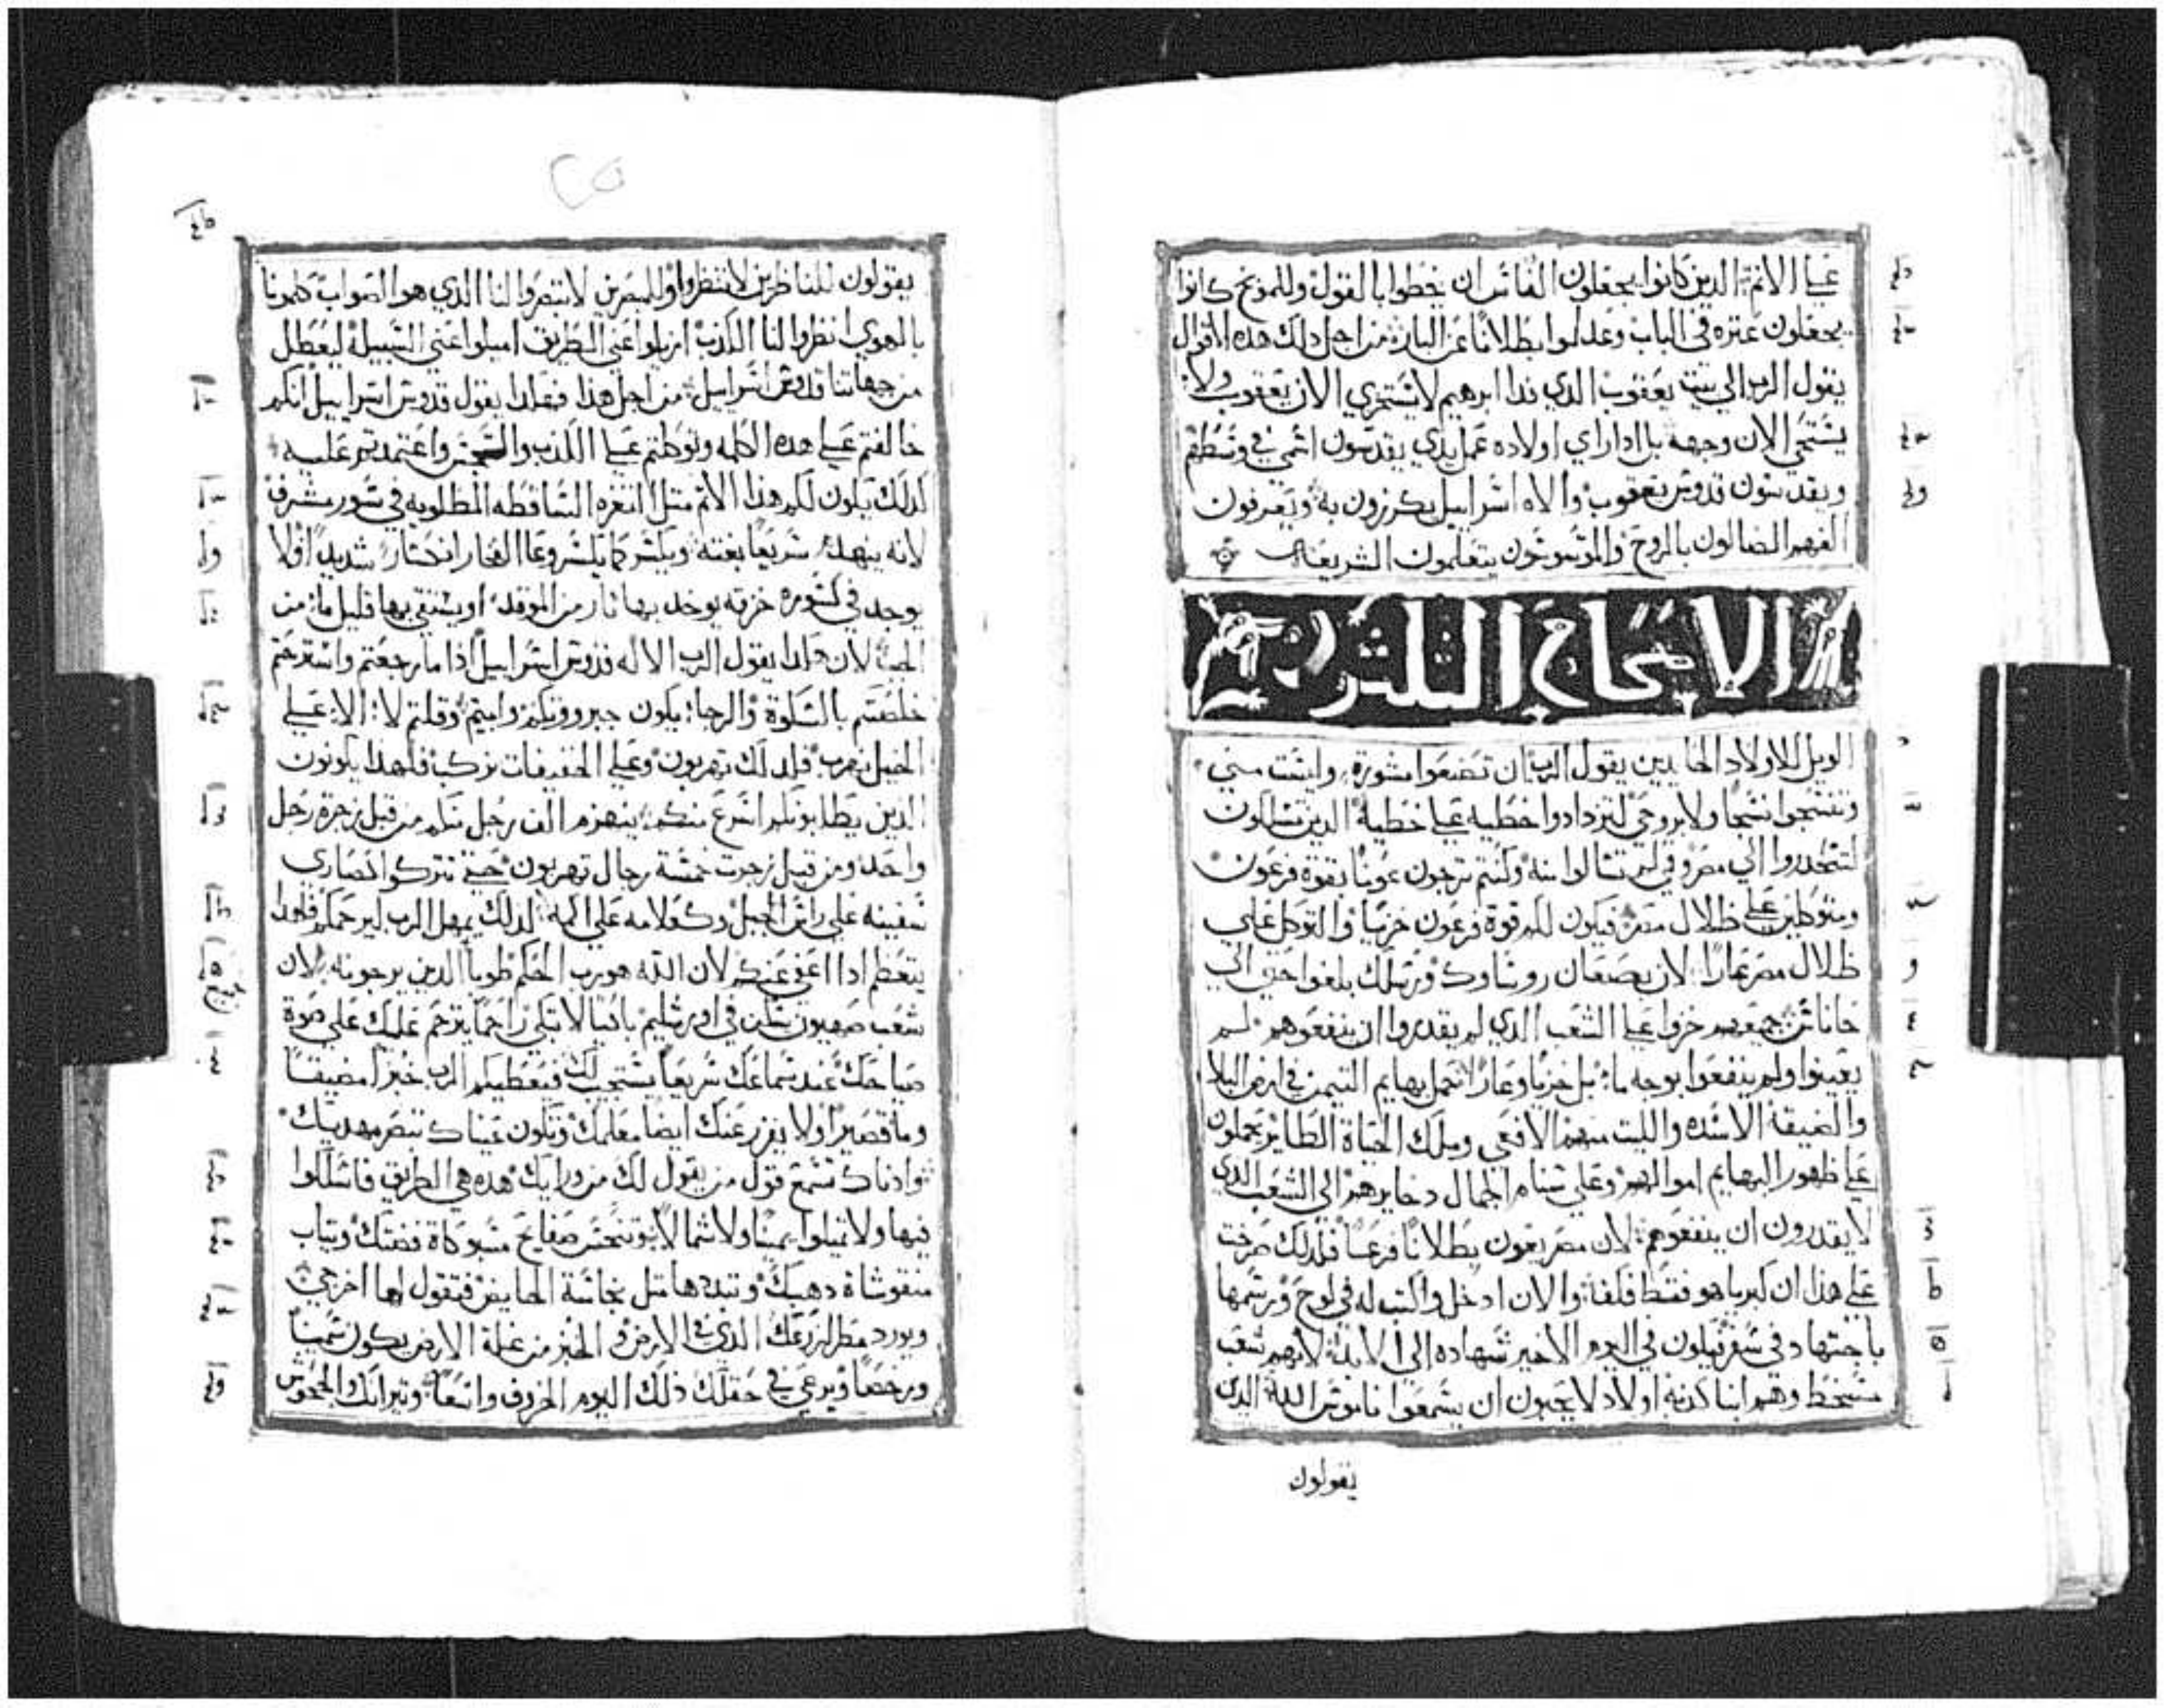 علي الاثم الدين كانوا يجعلون الناس ان يخطوا بالقول وللموبخ كانوا
يجعلون عتره في الباب وعدلوا بطلانًا عن البار من اجل دلك هده الاقوال
يقول الرب الي بيت يعقوب الدي فدا ابرهيم لا يستخزي الان يعقوب ولا
يستحي الان وجهه بل ادا راي اولاده عمل يدي يقدسون اسمي في وسطهم
ويقدسون قدوس يعقوب والاه اسراييل يكرزون به ويعرفون
الفهم الضالون بالروح والموسوسون يتعلمون الشريعه
الاصحاح الثلثون
الويل للاولاد الحايدين يقول الرب ان تصنعوا مشورة وليست مني
وتنسجوا نسجا ولا بروحي لتزدادوا خطيه علي خطية الدين تسلكون
لتنحدروا الي مصر وفمي لم تسالوا منه وكنتم ترجون عونًا بقوة فرعون
ومتوكلين علي ظلال مصر فيكون لكم قوة فرعون خزيًا والتوكل علي
ظلال مصر عارًا لان بصعان روساوك ورسلك بلغوا حتي الي
حاناس جميعهم خزوا علي الشعب الدي لم يقدروا ان ينفعوهم لم
يعينوا ولم ينفعوا بوجه ما بل خزيًا وعارًا تحمل بهايم التيمن في ارض البلا
والضيقة الاسده والليت منهم الافعي وملك الحياة الطاير يحملون
علي ظهور البهايم اموالهم وعلي سنام الجمال دخايرهم الي الشعب الدي
لا يقدرون ان ينفعوهم لان مصر يعون بطلانًا فرغًا فلدلك صرخت
علي هدا ان كبريا هو فقط فلفه والان ادخل واكتب له في لوح ورسمها
باجتهاد في سفر فيكون في اليوم الاخير شهاده الي الابد لانهم شعب
مسخط وهم ابنا كدبه اولاد لا يحبون ان يسمعوا ناموس الله الدين
يقولون
يقولون للناظرين لا تنظروا وللمبصرين لا تبصروا لنا الدي هو الصواب كلمونا
بالهوي انظروا لنا الكدب ازيلوا عني الطريق اميلوا عني السبيل ليعطل
من جهاتنا قدوس اسراييل من اجل هدا فهكدا يقول قدوس اسراييل انكم
خالفتم علي هده الكلمه وتوكلتم علي الكدب والتجسس واعتمدتم عليه
لدلك يكون لكم هدا الاثم متل التغره الساقطه المطلوبه في سور مشرف
لانه ينهدم سريعًا بغتة ويكسر كما يكسر وعا الفخار انكسارًا شديدًا فلا
يوجد في كسوره خزقه يوخد بها نار من الموقد او يستقي بها قليل ما من
الجب لان هكدا يقول الرب الاله قدوس اسراييل ادا ما رجعتم واسترحتم
خلصتم بالسكوة والرجا يكون جبرووتكم وابيتم وقلتم لا الا علي
الخيل نهرب فلدلك تهربون وعلي الخفيفات نركب فلهدا يكونون
الدين يطلبونكم اسرع منكم ينهزم الف رجل منكم من قبل زجرة رجل
واحد ومن قبل زجرت خمسة رجال تهربون حتي تتركوا كصاري
سفينه علي راس الجبل وكعلامه علي اكمه لدلك يمهل الرب ليرحمكم فلهدا
يتعظم ادا اعفي عنكم لان الله هو رب الحكم طوبا الدين يرجونه لان
شعب صهيون يسكن في اورشليم باكيًا لا تبكي راحمًا يترحم عليك علي صوة
صياحك عند سماعك سريعًا يستجيب لك فيعطيكم الرب خبزًا مضيقًا
وما قصيرًا ولا يفزر عنك ايضا معلمك وتكون عيناك تبصر مهديك
وادناك تسمع قول من يقول لك من ورايك هده هي الطريق فاسلكوا
فيها ولا تميلوا يمينًا ولا شمالا وتنجس صفايح مسبوكاة فضتك وتياب
منقوشاة دهبك وتبددها متل نجاسة الحايض فتقول لها اخرجي
ويورد مطر لزرعك الدي في الارض والخبز من غلة الارض يكون سمينًا
ورخصًا ويرعي في حقلك دلك اليوم الخروف واسعًا وتيرانك والجحوش